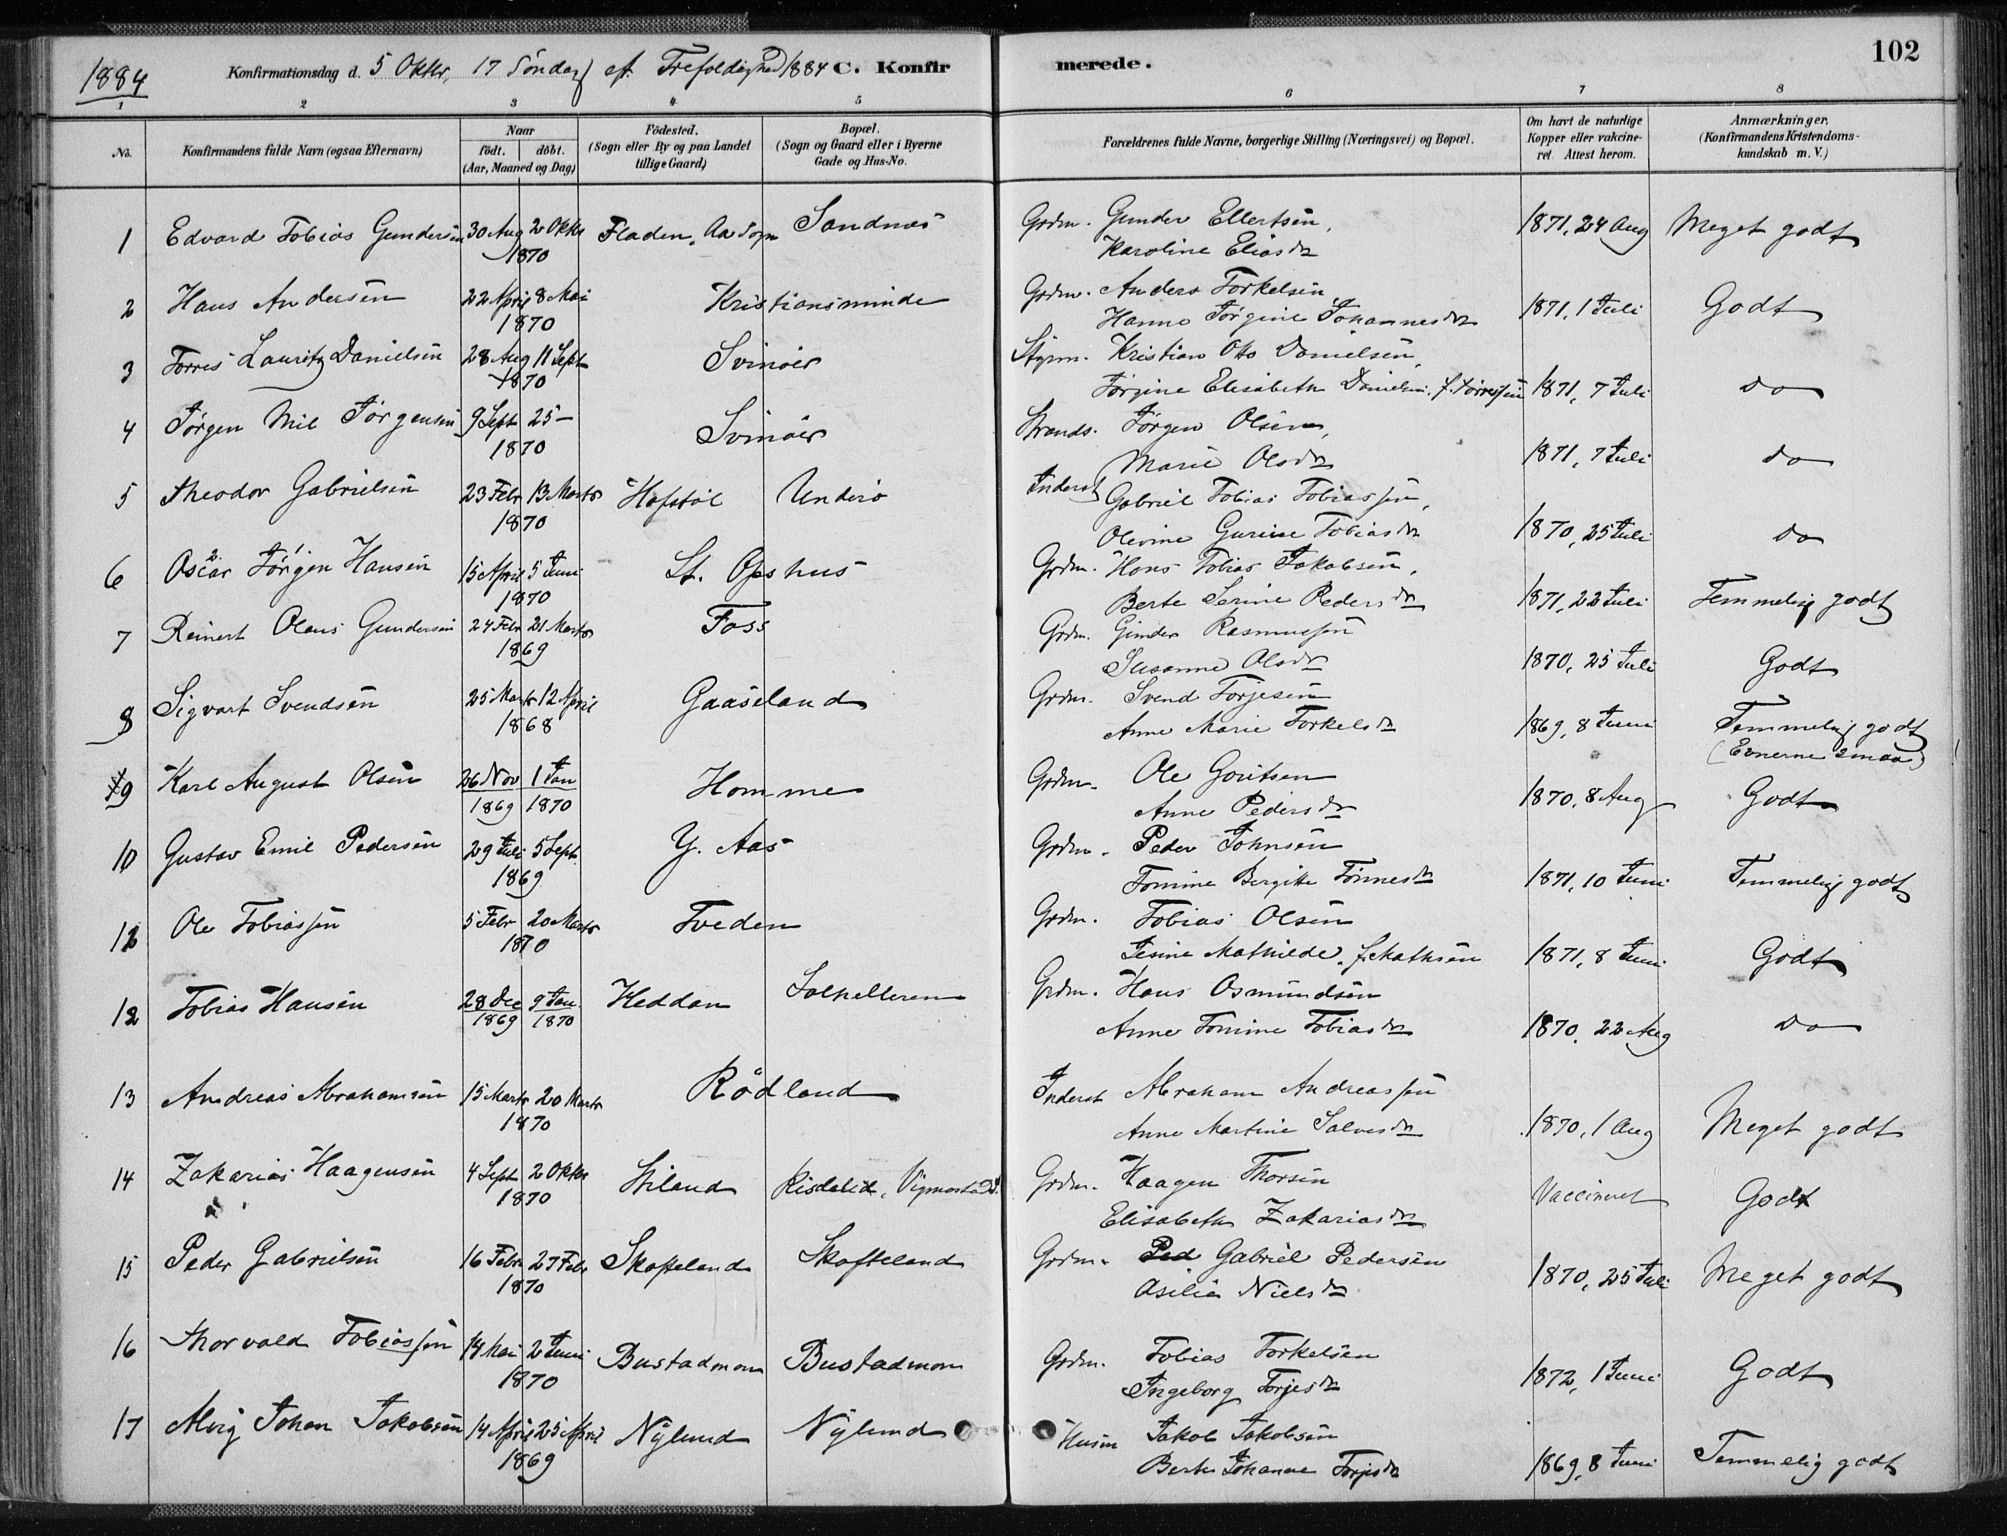 1884 Konfirmationsdag d. 5 Oktbr, 17 Söndag ef. Trefoldighed 1884 C. Konfirmerede. 102
1 2 3 4 5 6 7 8
No. Konfirmandens fulde Navn (ogsaa Efternavn) Naar födt. döbt. (Aar, Maaned og Dag) Födested. (Sogn eller By og paa Landet tillige Gaard) Bopæl. (Sogn og Gaard eller i Byerne Gade og Hus-No. Forældrenes fulde Navne, borgerlige Stilling (Næringsvei) og Bopæl. Om havt de naturlige Kopper eller vakcineret. Attest herom. Anmærkninger. (Konfirmandens Kristendomskundskab m. V.)
1 Edvard Tobias Gundersen 30 Aug 2 Oktbr 1870 Fladen, Aa Sogn Sandnes Grdm. Gunder Ellertsen, 1871, 24 Aug Meget godt
Karoline Eliasdr
2 Hans Andersen 22 April 8 Mai 1870 Kristiansminde Grdm. Anders Torkelsen, 1871, 1 Juli Godt
Hanne Jørgine Johannesdr
3 Torres Lauritz Danielsen 28 Aug 11 Sept 1870 Svinöer Styrm. Kristian Otto Danielsen,
Jørgine Elisabeth Danielsen f. Torresen 1871, 7 Juli do
4 Jørgen Mil Jørgensen 9 Sept 25 – 1870 Svinöer Strands. Jørgen Olsen,
Marie Olsdr 1871, 7 Juli do
5 Theodor Gabrielsen 23 Febr 13 Marts 1870 Hofstöl Underö Inderst Gabriel Tobias Tobiassen,
Olevine Gurine Tobiasdr 1870, 25 Juli do
6 Oscar Jørgen Hansen 15 April 5 Juni 1870 St. Opshus Grdm. Hans Tobias Jakobsen,
Berte Serine Pedersdr 1871, 22 Juli Temmelig godt
7 Reinert Olaus Gundersen 24 Febr 21 Marts 1869 Foss Grdm. Gunder Rasmussen
Susanne Olsdr 1870, 25 Juli Godt
8 Sigvart Svendsen 25 Marts 12 April 1868 Gaaseland Grdm. Svend Torjesen
Anne Marie Torkelsdr 1869, 8 Juni Temmelig godt
(Evnerne smaa)
9 Karl August Olsen 26 Nov 1869 1 Jan 1870 Homme Grdm. Ole Goritsen
Anne Pedersdr 1870, 8 Aug Godt
10 Gustav Emil Pedersen 29 Juli 5 Sept. 1869 Y. Aas Grdm. Peder Johnsen
Tomine Bergitte Tönnesdr 1871, 10 Juni Temmelig godt
12 Ole Tobiassen 5 Febr 20 Marts 1870 Tveden Grdm. Tobias Olsen
Jesine Mathilde f. Mathisen 1871, 8 Juni Godt
12 Tobias Hansen 28 Dec 1869 9 Jan 1870 Heddan Solhelleren Grdm. Hans Osmundsen
Anne Tomine Tobiasdr 1870, 22 Aug do
13 Andreas Abrahamsen 15 Marts 20 Marts 1870 Rödland Inderst Abraham Andreassen
Anne Martine Salvesdr 1870, 1 Aug Meget godt
14 Zakarias Haagensen 4 Sept 2 Oktbr 1870 Stiland Risdalid, Vigmostad Grdm. Haagen Thorsen Vaccineret Godt
Elisabeth Zakariasdr
15 Peder Gabrielsen 16 Febr 27 Febr 1870 Skofteland Skofteland Grdm. Ped Gabriel Pedersen
Asilie Nielsdr 1870, 25 Juli Meget godt
16 Thorvald Tobiassen 14 Mai 2 Juni 1870 Bustadmoen Bustadmoen Grdm. Tobias Torkelsen
Ingeborg Torjesdr 1872, 1 Juni Godt
17 Alvig Johan Jakobsen 14 April 25 April 1869 Nylund Nylund Husm Jakob Jakobsen
Berte Johanne Torjesdr 1869, 8 Juni Temmelig godt